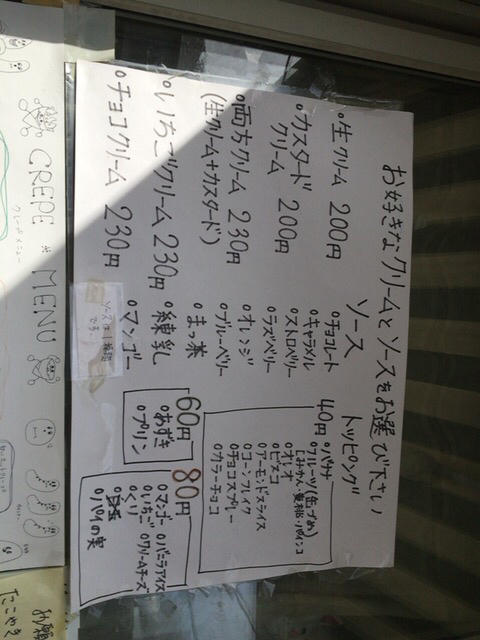 お好きなクリームとソースをお選び下さい
°生クリーム 200円
°カスタード
クリーム 200円
°両方クリーム 230円
(生クリーム+カスタード)
°いちごクリーム 230円
°チョコクリーム 230円
ソース
°チョコレート
°キャラメル
°ストロベリー
°ラズベリー
°オレンジ
°ブルーベリー
°まっ茶
°練乳
°マンゴー
ソースは1種類
です。
トッピング
40円
°バナナ
°フルーツ(缶づめ)
[みかん・黄桃・パイン]
°オレオ
°ビスコ
°アーモンドスライス
°コーンフレイク
°チョコスプレー
°カラーチョコ
60円
°あずき
°プリン
80円
°マンゴー °バニラアイス
°いちご °クリームチーズ
°くり
°パイの実
CREPE * MENU
クレープメニュー
お願
たこやき